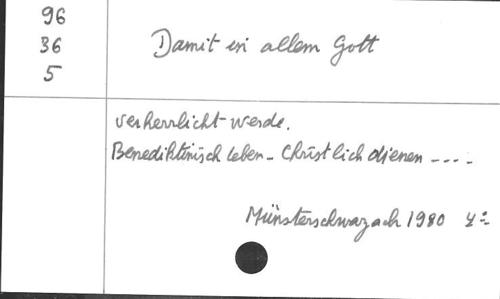 96
36
5
Damit in allem Gott
verherrlicht werde.
Benediktinisch leben - Christlich dienen ----
Münsterschwarzach 1980 4°